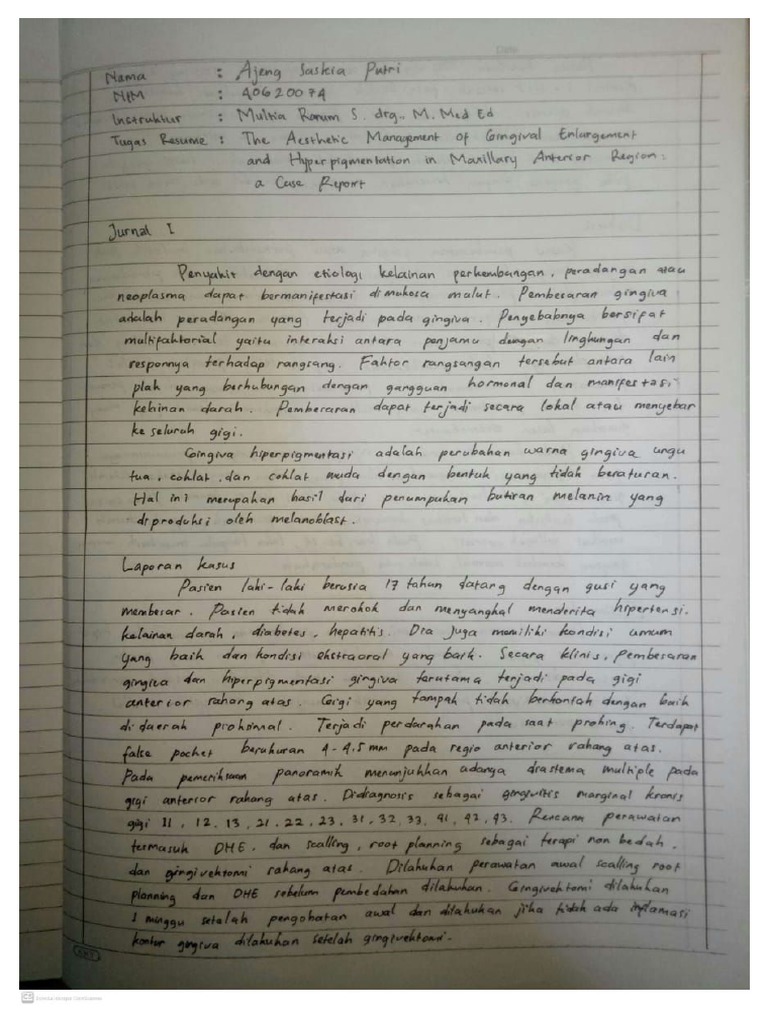 Nama : Ajeng Saskia Putri
NIM : 40620074
Instruktur : Multia Ranum S. drg., M. Med Ed
Tugas Resume : The Aesthetic Management of Gingival Enlargement
and Hyperpigmentation in Maxillary Anterior Region:
a Case Report
Jurnal I
Penyakit dengan etiologi kelainan perkembangan, peradangan atau
neoplasma dapat bermanifestasi di mukosa mulut. Pembesaran gingiva
adalah peradangan yang terjadi pada gingiva. Pengebabnya bersifat
multifaktorial yaitu interaksi antara penjamu dengan lingkungan dan
responnya terhadap rangsang. Faktor rangsangan tersebut antara lain
plak yang berhubungan dengan gangguan hormonal dan manifestasi
kelainan darah. Pembesaran dapat terjadi secara lokal atau menyebar
ke seluruh gigi.
Gingiva hiperpigmentasi adalah perubahan warna gingiva ungu
tua, coklat, dan coklat muda dengan bentuk yang tidak beraturan.
Hal ini merupakan hasil dari penumpukan butiran melanin yang
diproduksi oleh melanoblast.
Laporan kasus
Pasien laki-laki berusia 17 tahun datang dengan gusi yang
membesar. Pasien tidak merokok dan menyangkal menderita hipertensi.
kelainan darah, diabetes, hepatitis. Dia juga memiliki kondisi umum
yang baik dan kondisi ekstraoral yang baik. Secara klinis, pembesaran
gingiva dan hiperpigmentasi gingiva terutama terjadi pada gigi
anterior rahang atas. Gigi yang tampak tidak berkontak dengan baik
di daerah proksimal. Terjadi perdarahan pada saat probing. Terdapat
false pocket berukuran 4-4,5 mm pada regio anterior rahang atas.
Pada pemeriksaan panoramik menunjukkan adanya diastema multiple pada
gigi anterior rahang atas. Didiagnosis sebagai gingivitis marginal kronis
gigi 11, 12, 13, 21, 22, 23, 31, 32, 33, 41, 42, 43. Rencana perawatan
termasuk DHE, dan scalling, root planning sebagai terapi non bedah,
dan gingivektomi rahang atas. Dilakukan perawatan awal scalling root
planning dan DHE sebelum pembedahan dilakukan. Gingivektomi dilakukan
1 minggu setelah pengobatan awal dan dilakukan jika tidak ada inflamasi
kontur gingiva dilakukan setelah gingivektomi.